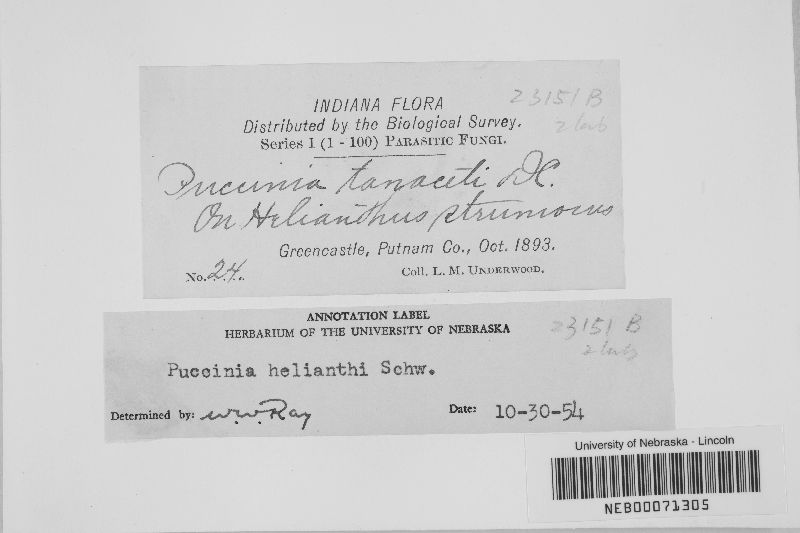 INDIANA FLORA
23151 B
Distributed by the Biological Survey.
Series I (1 - 100) PARASITIC FUNGI.
Puccinia tanaceti DC.
On Helianthus strumosus
Greencastle, Putnam Co., Oct. 1893.
No. 24.
Coll. L. M. UNDERWOOD.
ANNOTATION LABEL
HERBARIUM OF THE UNIVERSITY OF NEBRASKA
23151 B
Puccinia helianthi Schw.
Determined by: W.W. Ray
Date: 10-30-54
University of Nebraska - Lincoln
NEB00071305